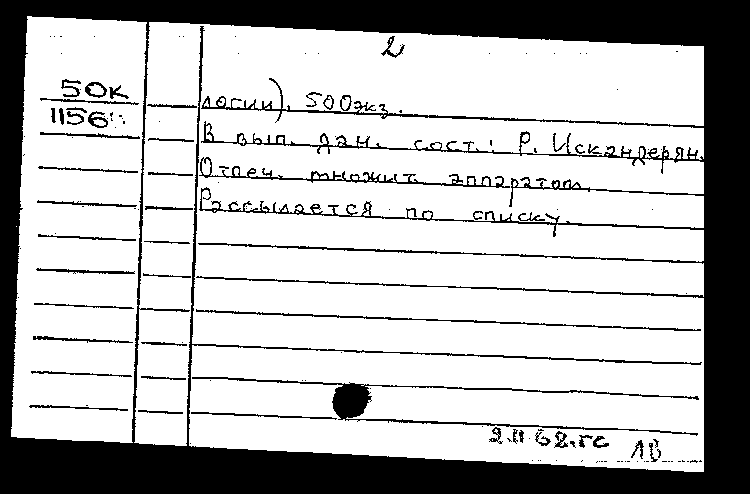 2
50К
1156
логии). 500экз.
В вып. дан. сост.: Р. Искандерян.
Отпеч. множит. аппаратом.
Рассылается по списку.
2.II 68.гс 1В